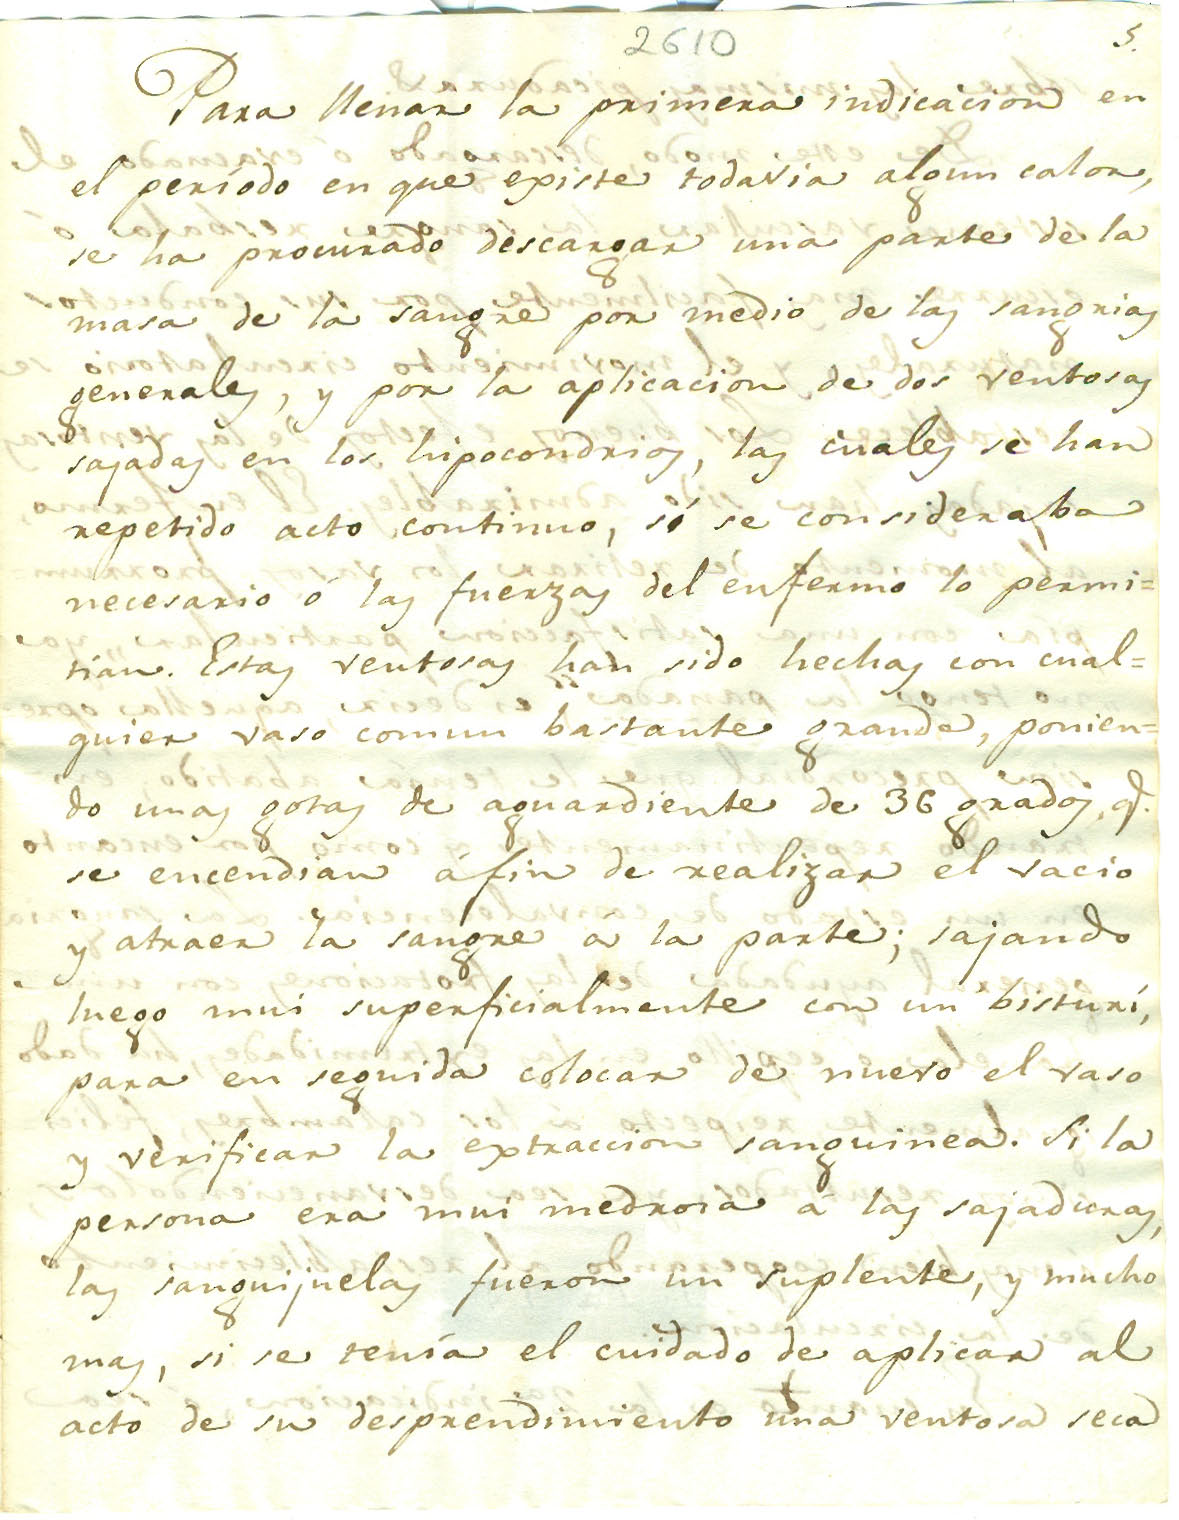 2610
5.
Para llenar la primera indicacion en
el período en que existe todavia algun calor,
se ha procurado descargar una parte de la
masa de la sangre por medio de las sangrias
generales, y por la aplicacion de dos ventosas
sajadas en los hipocondrios, las cuales se han
repetido acto continuo, si se consideraba
necesario ó las fuerzas del enfermo lo permi=
tian. Estas ventosas han sido hechas con cual=
quier vaso comun bastante grande, ponien=
do unas gotas de aguardiente de 36 grados, q.
se encendian áfin de realizar el vacio
y atraer la sangre á la parte; sajando
luego mui superficialmente con un bisturí,
para en seguida colocar de nuevo el vaso
y verificar la extraccion sanguinea. Si la
persona era mui medrosa á las sajaduras,
las sanguijuelas fueron un suplente, y mucho
mas, si se tenía el cuidado de aplicar al
acto de su desprendimiento una ventosa seca